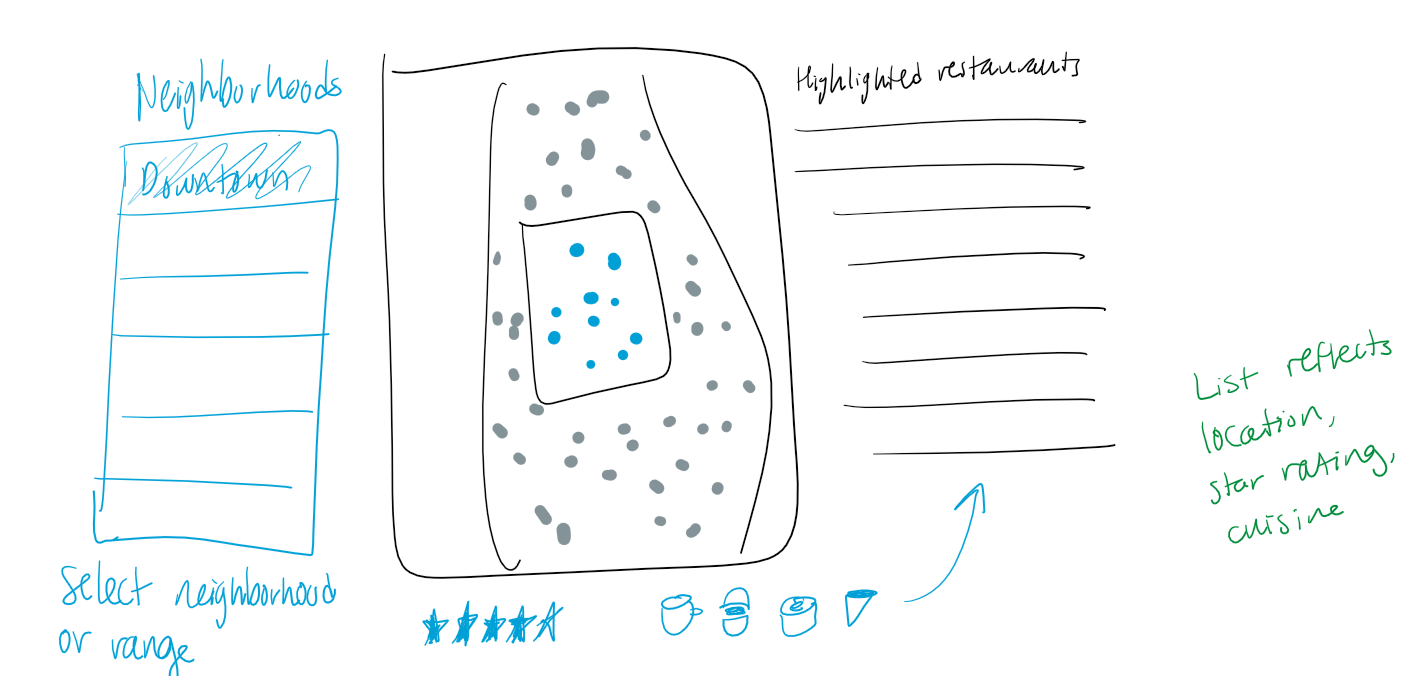 Neighborhoods
Downtown
Select neighborhood
or range
Highlighted restaurants
List reflects
location,
star rating,
cuisine